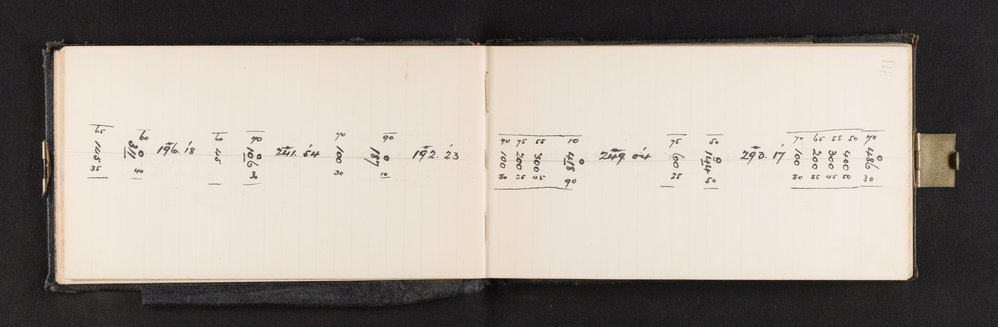 65 105 35
60 311 40
196.18
60 45
70 105 30
241.54
70 100 30
90 187 10
192.23
14
70 75 55 10
100 200 300 418
30 25 45 90
249.04
75 60 25
50 144 50
293.17
70 65 55 50 70
100 200 300 400 486
30 35 45 50 30